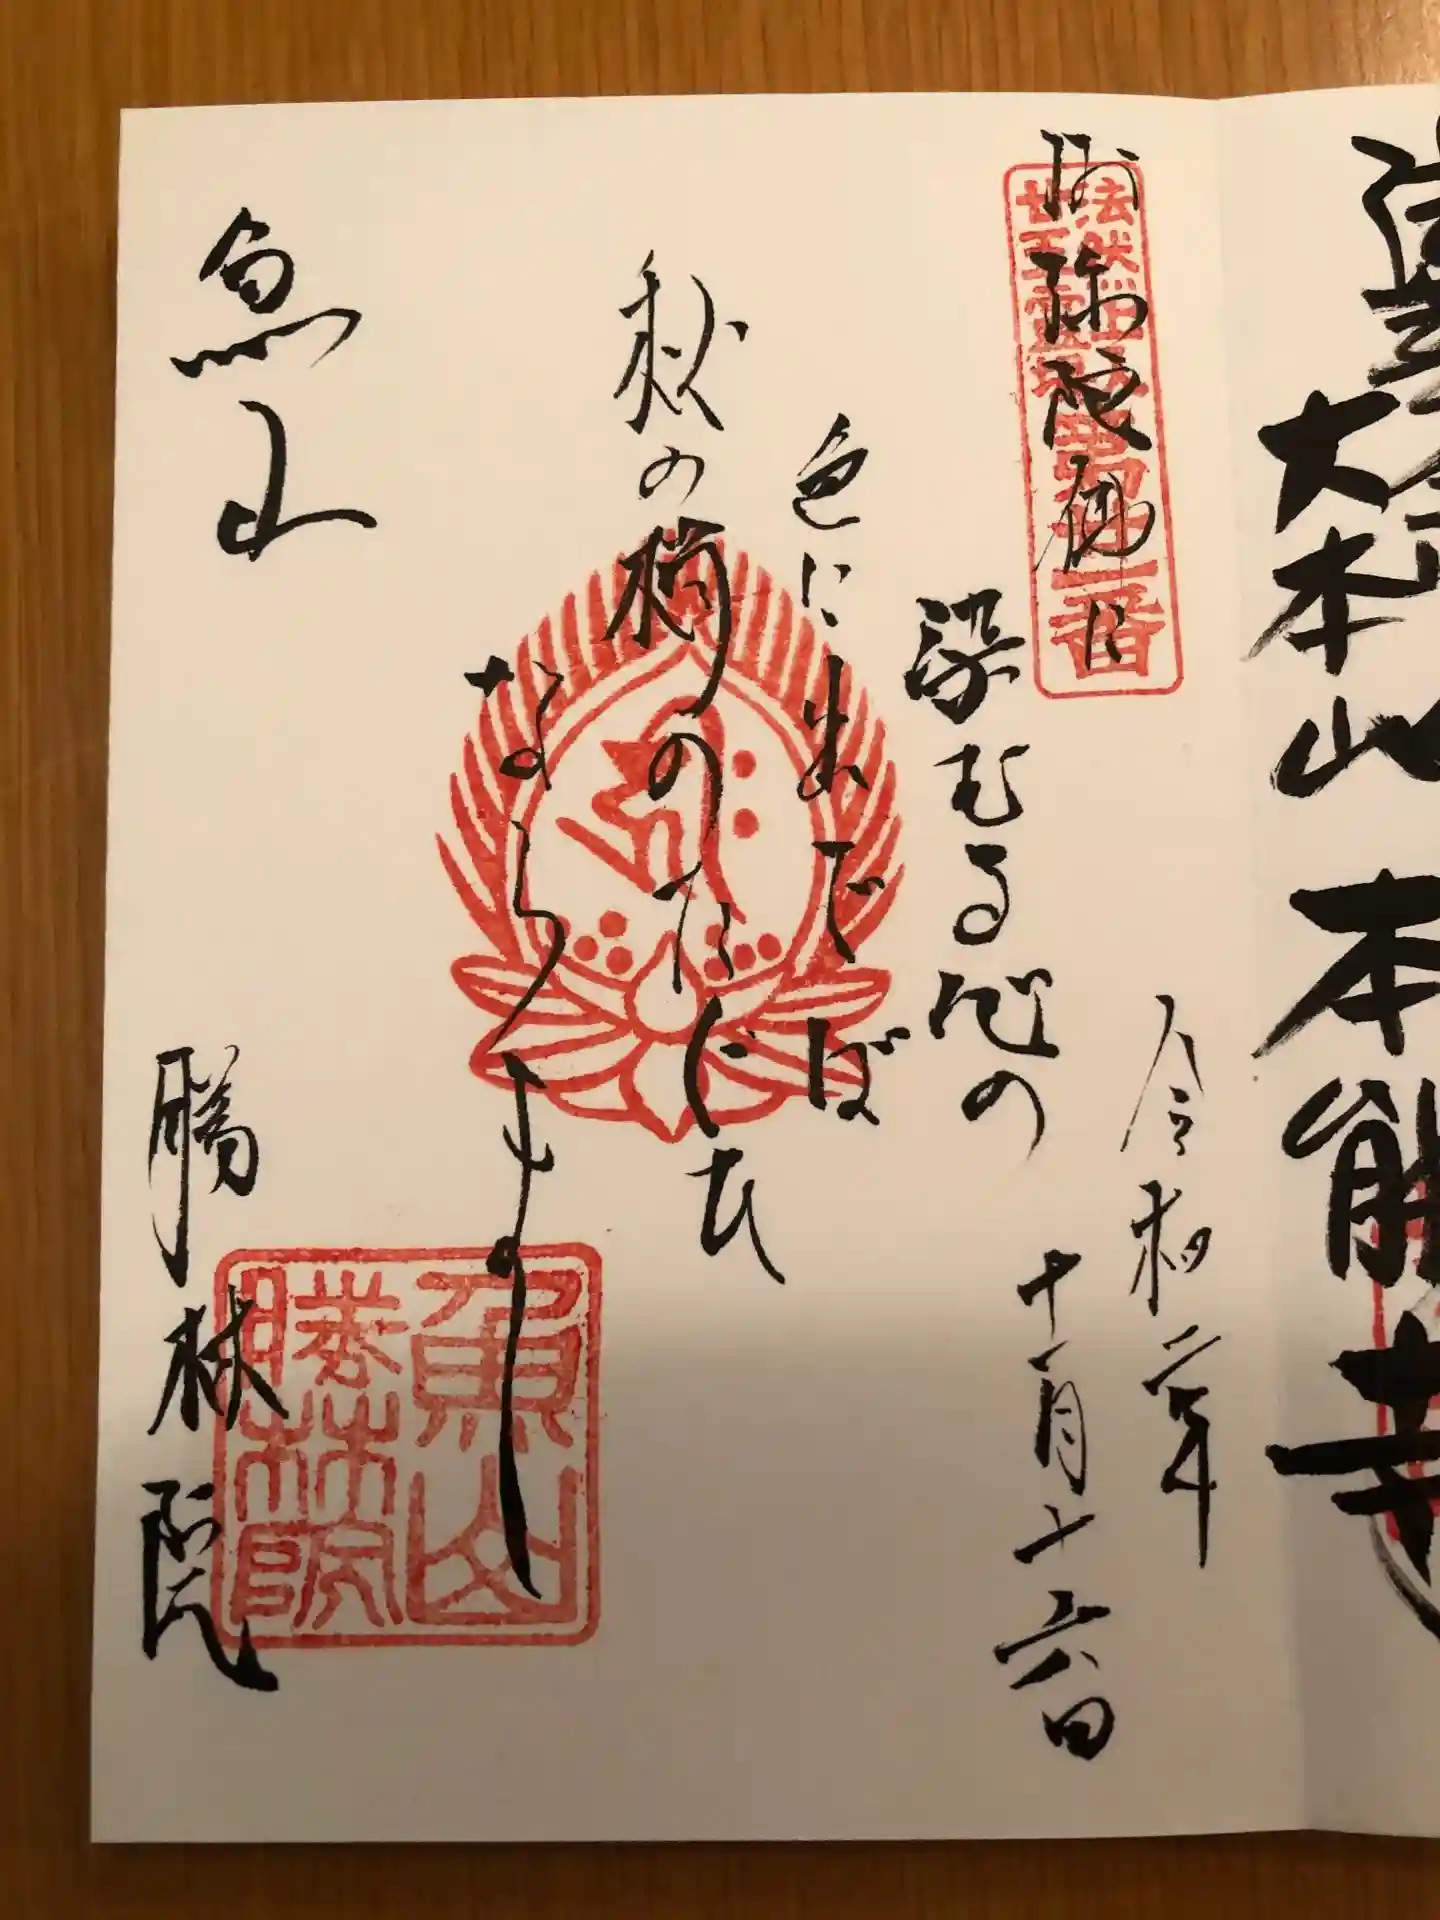 大本山 本能寺
法然上人
廿五霊場第廿一番
阿弥陀佛に
染むる心の
色に出でば
秋の梢の
たぐひ
ならまし
令和二年
十一月十六日
魚山
勝林院
魚山
勝林院